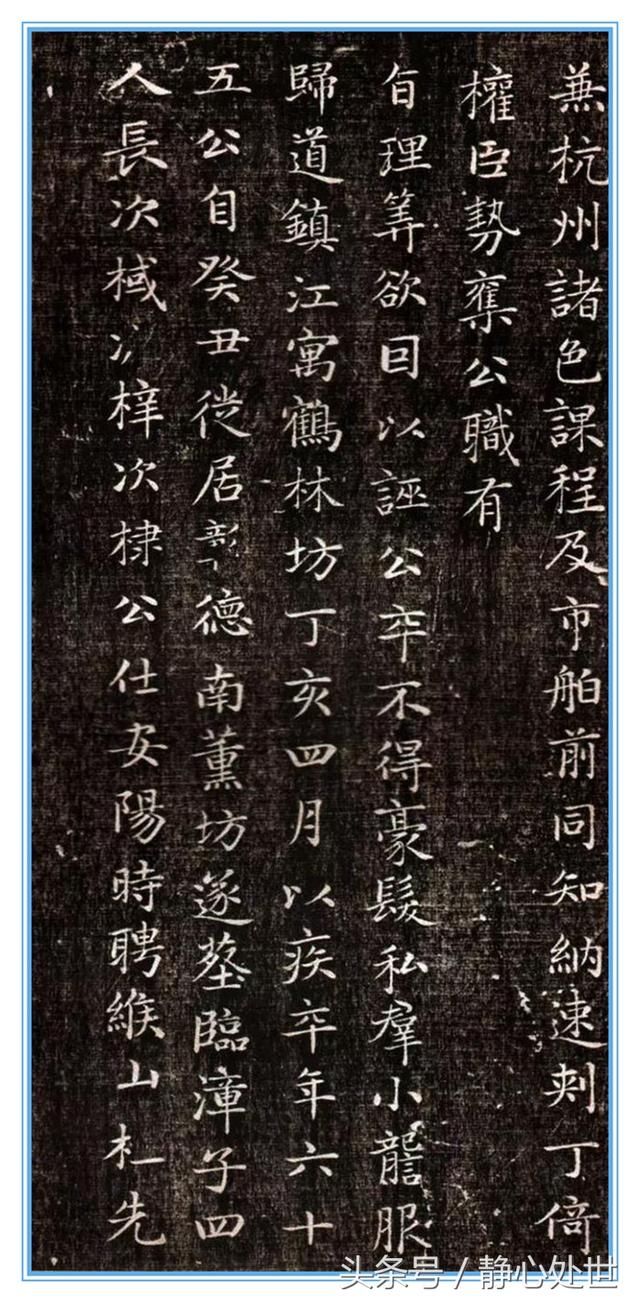 兼杭州諸色課程及市舶前同知納速刺丁倚
權臣勢奪公職有
旨理筭欲因以誣公卒不得豪髮私羣小讋服
歸道鎮江寓鶴林坊丁亥四月以疾卒年六十
五公自癸丑徙居彰德南薰坊遂塟臨漳子四
人長次棫次梓次棣公仕安陽時聘緱山杜先
头条号 / 静心处世